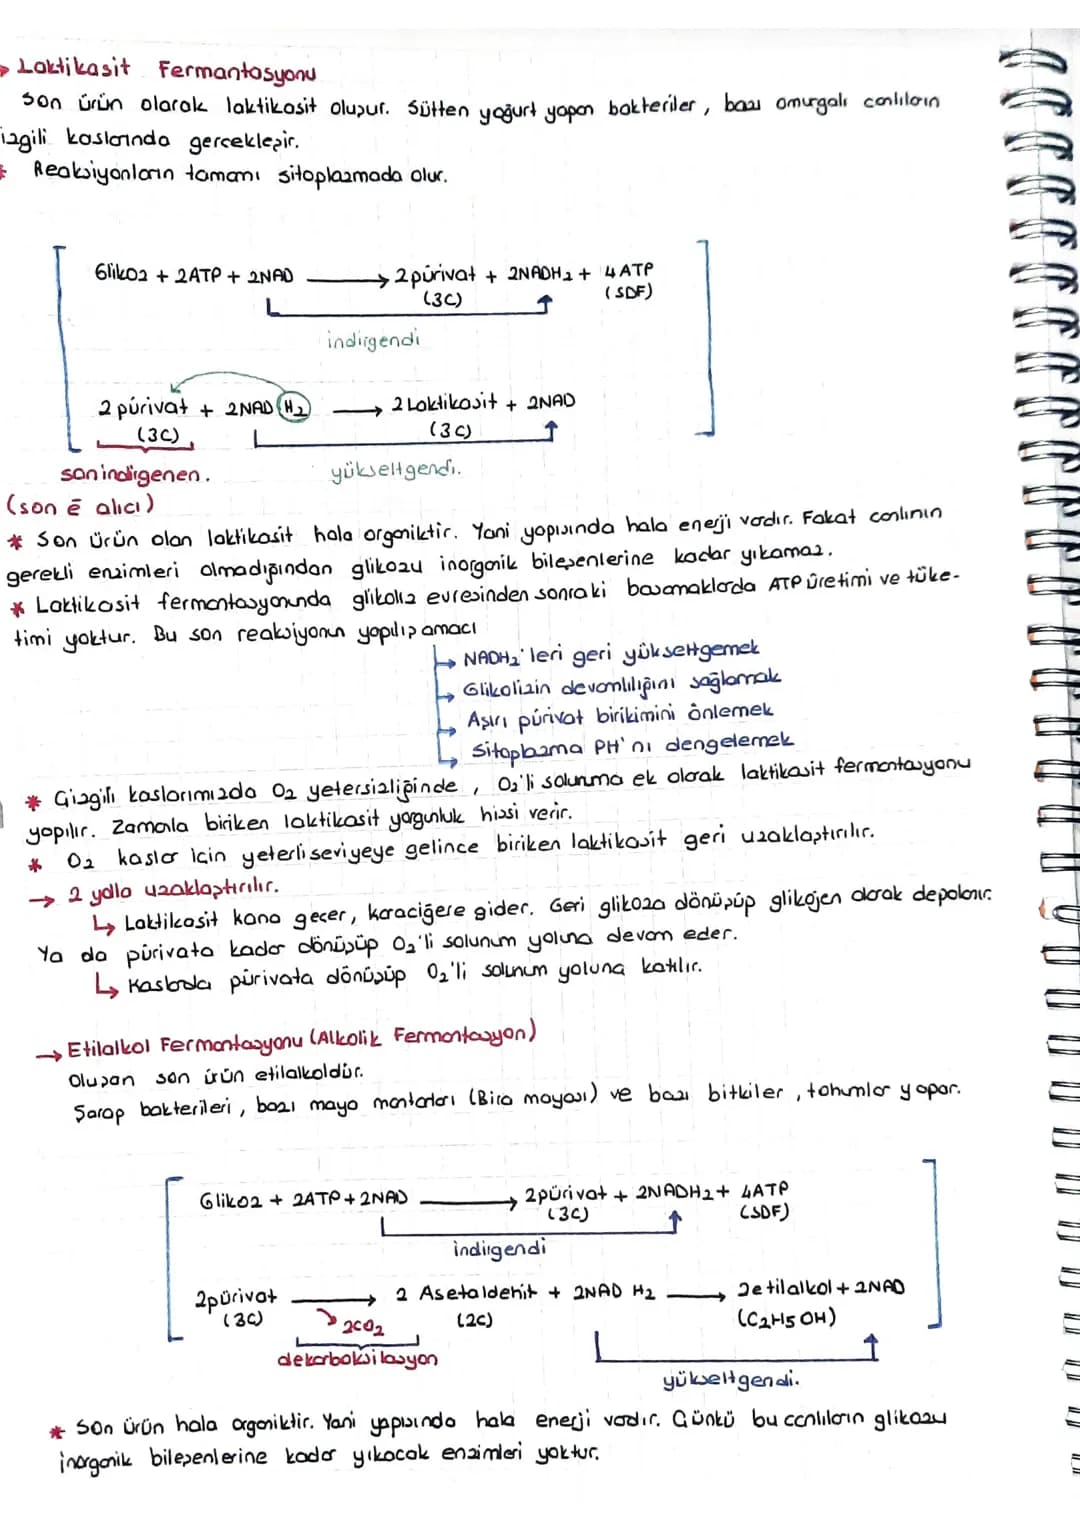 → Laktikasit Fermantasyonu
Son ürün olarak laktikasit oluşur. Sütten yoğurt yapan bakteriler, bazı omurgalı canlıların
izgili kaslarında gerçekleşir.
* Reaksiyonların tamamı sitoplazmada olur.
Glikoz + 2ATP + 2NAD → 2 pürivat + 2NADH2 + 4 ATP
(3C) (SDF)
indirgendi
2 pürivat + 2NAD H2 → 2 Laktikasit + 2NAD
(3C) (3C)
son indirgenen. yükseltgendi.
(son ē alıcı)
* Son ürün olan laktikasit hala organiktir. Yani yapısında hala enerji vardır. Fakat canlının
gerekli enzimleri olmadığından glikozu inorganik bileşenlerine kadar yıkamaz.
* Laktikasit fermantasyonunda glikoliz evresinden sonraki basamaklarda ATP üretimi ve tüke-
timi yoktur. Bu son reaksiyonun yapılış amacı
→ NADH2'leri geri yükseltgemek
→ Glikolizin devamlılığını sağlamak
→ Aşırı pürivat birikimini önlemek
→ Sitoplazma PH'nı dengelemek
* Çizgili kaslarımızda O2 yetersizliğinde, O2'li solunuma ek olarak laktikasit fermantasyonu
yapılır. Zamanla biriken laktikasit yorgunluk hissi verir.
* O2 kaslar için yeterli seviyeye gelince biriken laktikasit geri uzaklaştırılır.
→ 2 yolla uzaklaştırılır.
↳ Laktikasit kana geçer, karaciğere gider. Geri glikoza dönüşüp glikojen olarak depolanır.
Ya da pürivata kadar dönüşüp O2'li solunum yoluna devam eder.
↳ Kaslarda pürivata dönüşüp O2'li solunum yoluna katılır.
→ Etilalkol Fermantasyonu (Alkolik Fermantasyon)
Oluşan son ürün etilalkoldür.
Şarap bakterileri, bazı maya mantarları (Bira mayası) ve bazı bitkiler, tohumlar yapar.
Glikoz + 2ATP + 2NAD → 2pürivat + 2NADH2 + 4ATP
(3C) (SDF)
indirgendi
2pürivat → 2 Asetaldehit + 2NAD H2 → 2etilalkol + 2NAD
(3C) 2CO2 (2C) (C2H5OH)
dekarboksilasyon
yükseltgendi.
* Son ürün hala organiktir. Yani yapısında hala enerji vardır. Çünkü bu canlıların glikozu
inorganik bileşenlerine kadar yıkacak enzimleri yoktur.